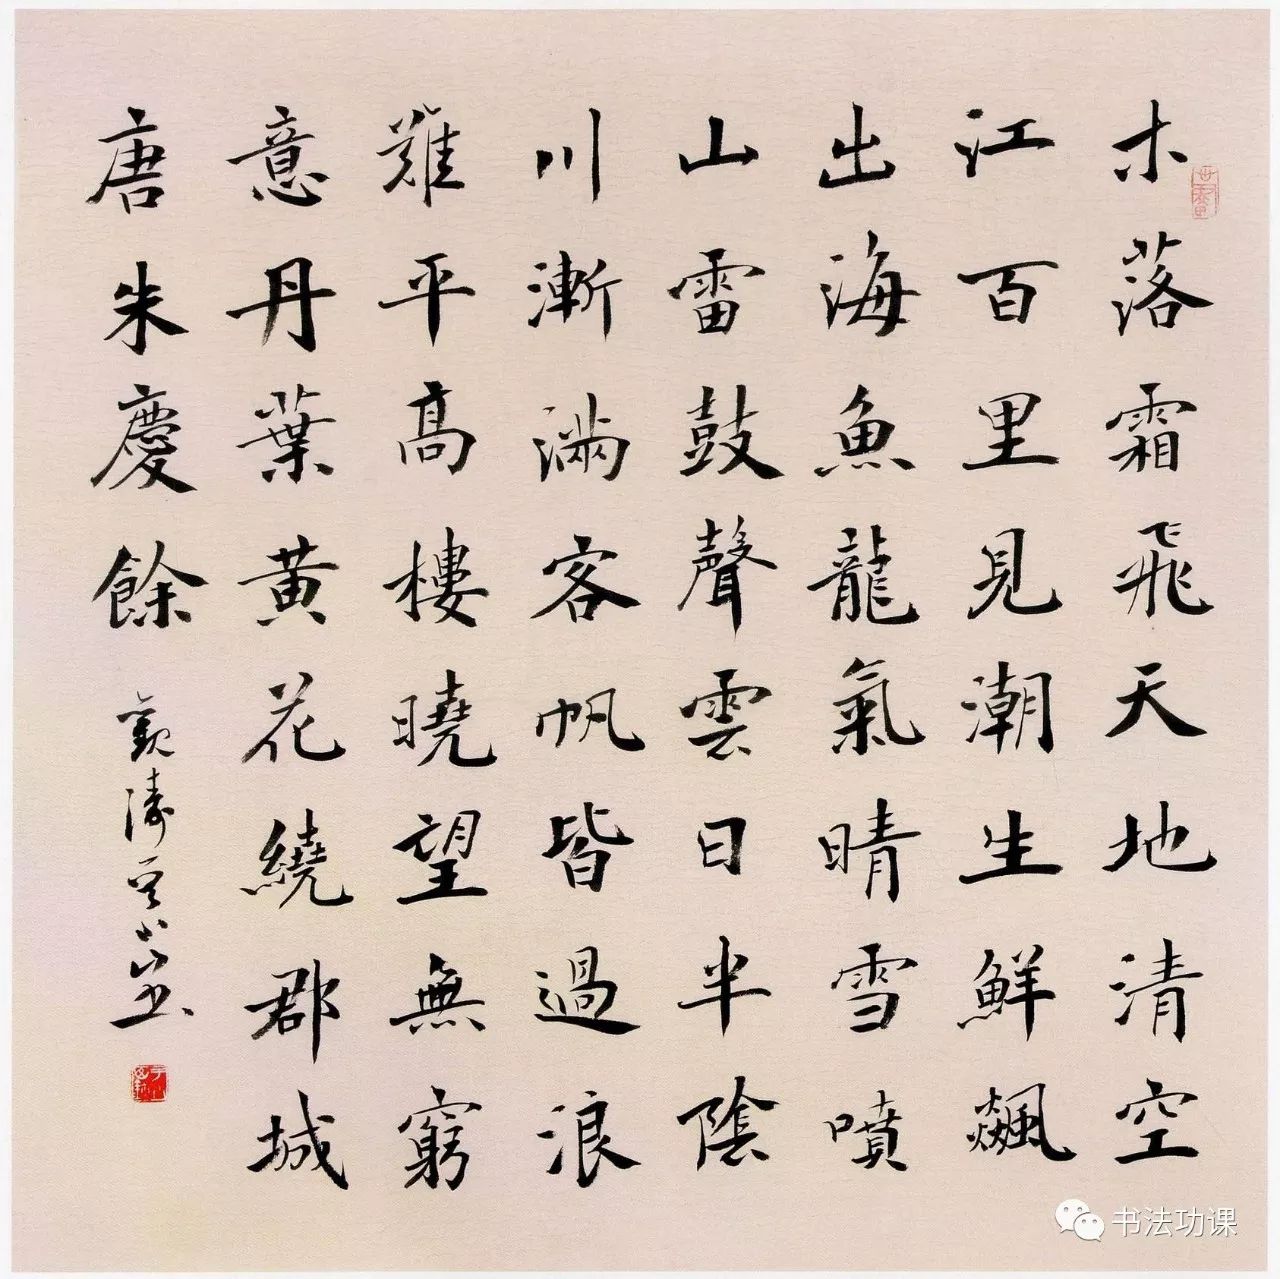 木落霜飛天地清空
江百里見潮生鮮飆
出海魚龍氣晴雪噴
山雷鼓聲雲日半陰
川漸滿客帆皆過浪
難平高樓曉望無窮
意丹葉黃花繞郡城
唐朱慶餘 觀濤
书法功课